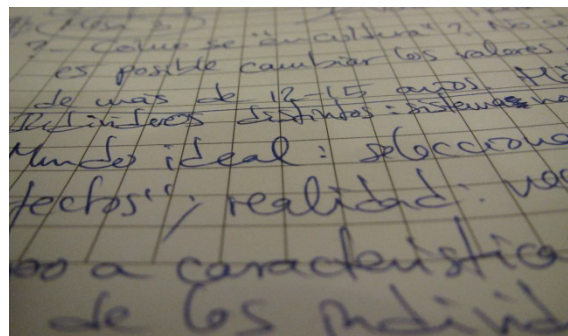 ? - Cómo se "en cultura"? No se
es posible cambiar los valores
de más de 12-15 años.
Individuos distintos: sistemas
Mundo ideal: selecciona
fectos"; realidad:
a característica
de los individ